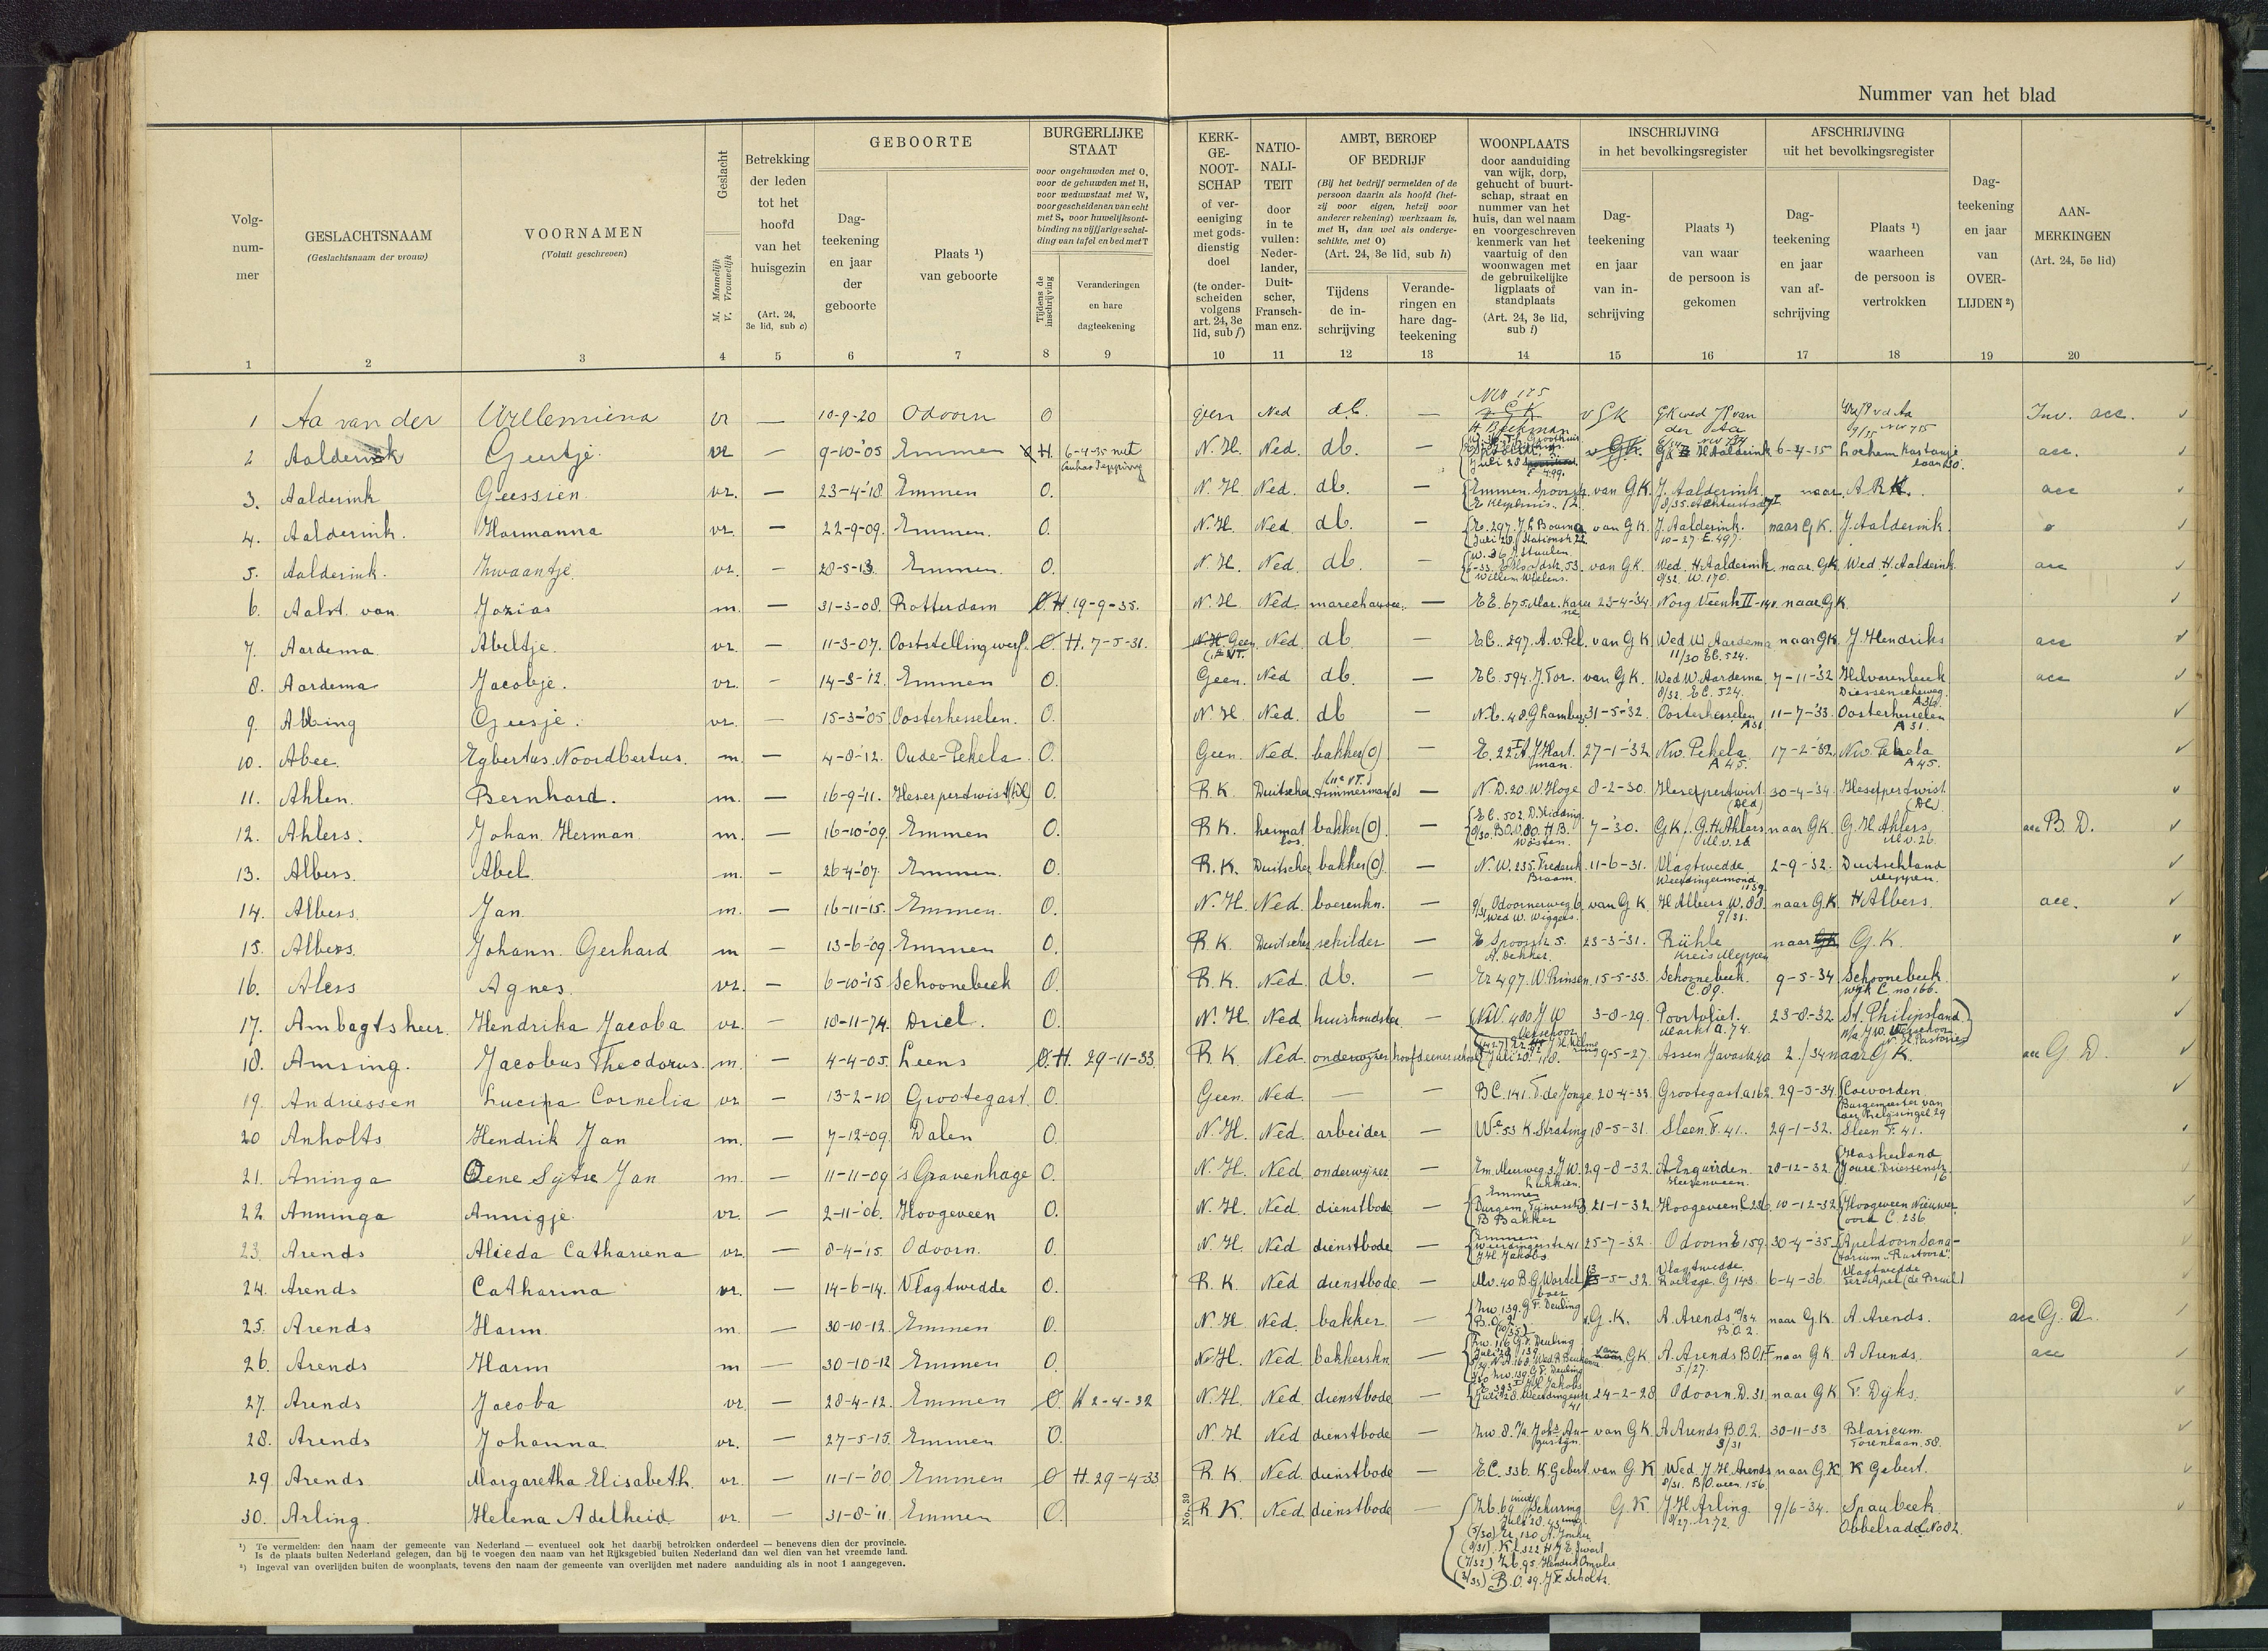 Nummer van het blad
Volg-
num-
mer
GESLACHTSNAAM
(Geslachtsnaam der vrouw)
VOORNAMEN
(Voluit geschreven)
Geslacht
M. Mannelijk
V. Vrouwelijk
Betrekking
der leden
tot het
hoofd
van het
huisgezin
(Art. 24,
3e lid, sub c)
GEBOORTE
Dag-
teekening
en jaar
der
geboorte
Plaats ¹)
van geboorte
BURGERLIJKE
STAAT
voor ongehuwden met O,
voor de gehuwden met H,
voor weduwstaat met W,
voor gescheidenen van echt
met S, voor huwelijksont-
binding na vijfjarige schei-
ding van tafel en bed met T
Tijdens de
inschrijving
Veranderingen
en hare
dagteekening
KERK-
GE-
NOOT-
SCHAP
of ver-
eeniging
met gods-
dienstig
doel
(te onder-
scheiden
volgens
art. 24, 3e
lid, sub f)
NATIO-
NALI-
TEIT
door
in te
vullen:
Neder-
lander,
Duit-
scher,
Fransch-
man enz.
AMBT, BEROEP
OF BEDRIJF
(Bij het bedrijf vermelden of de
persoon daarin als hoofd (het-
zij voor eigen, hetzij voor
anderer rekening) werkzaam is,
met H, dan wel als onderge-
schikte, met O)
(Art. 24, 3e lid, sub h)
Tijdens
de in-
schrijving
Verande-
ringen en
hare dag-
teekening
WOONPLAATS
door aanduiding
van wijk, dorp,
gehucht of buurt-
schap, straat en
nummer van het
huis, dan wel naam
en voorgeschreven
kenmerk van het
vaartuig of den
woonwagen met
de gebruikelijke
ligplaats of
standplaats
(Art. 24, 3e lid,
sub i)
INSCHRIJVING
in het bevolkingsregister
Dag-
teekening
en jaar
van in-
schrijving
Plaats ¹)
van waar
de persoon is
gekomen
AFSCHRIJVING
uit het bevolkingsregister
Dag-
teekening
en jaar
van af-
schrijving
Plaats ¹)
waarheen
de persoon is
vertrokken
Dag-
teekening
en jaar
van
OVER-
LIJDEN ²)
AAN-
MERKINGEN
(Art. 24, 5e lid)
1 2 3 4 5 6 7 8 9 10 11 12 13 14 15 16 17 18 19 20
1 Aa van der Willemiena vr — 10-9-20 Odoorn O geen Ned db. — v GK GK wed JP van der Aa Inv. acc.
2 Aalderink Geertje vr — 9-10-'05 Emmen H. 6-4-35 met N.H. Ned. db. — H Aalderink 6-4-35 Lochem acc.
3. Aalderink Geessien vr. — 23-4-'18. Emmen O. N.H. Ned. db. — Emmen. van G.K. J. Aalderink naar acc
4. Aalderink. Harmanna vr. — 22-9-09. Emmen. O. N.H. Ned. db. — E. 297. van G.K. J. Aalderink. 10-27 E. 497. naar G.K. J. Aalderink.
5. Aalderink. Zwaantje. vr. — 28-5-13. Emmen. O. N.H. Ned. db. — van G.K. Wed. H. Aalderink 9/32. W. 170. naar GK Wed. H. Aalderink acc
6. Aalst. van Jozias m. — 31-3-08. Rotterdam O. H. 19-9-35. N.H. Ned. — 23-4-'34. Norg naar GK.
7. Aardema. Abeltje. vr. — 11-3-07. Ooststellingwerf. O. H. 7-5-31. N.H. Geen Ned. db — E.C. 297. A.v. Pel. van G K Wed W. Aardema 11/30 E.C. 524. naar GK J. Hendriks acc
8. Aardema Jacobje. vr. — 14-3-'12. Emmen O. Geen. Ned db. — E.C. 594. J. Tor. van G.K. Wed W. Aardema 8/32. E.C. 524. 7-11-'32 Hilvarenbeek acc
9. Abbing Geesje. vr. — 15-3-'05 Oosterhesselen. O. N.H. Ned. db — 31-5-'32. Oosterhesselen A31 11-7-'33. Oosterhesselen A31.
10. Abee. Egbertus. Noordbertus. m. — 4-8-'12. Oude-Pekela. O. Geen. Ned. bakker (O) — 27-1-'32 Nw. Pekela A 45. 17-2-'32. Nw. Pekela A 45.
11. Ahlen. Bernhard. m. — 16-9-'11. O. R.K. Duitscher timmerman (o) — N.D. 20. W. Hoge 8-2-30. 30-4-'34.
12. Ahlers. Johan. Herman. m. — 16-10-'09. Emmen O. R.K. heimat los. bakker (O) — 7-'30. GK. G.H. Ahlers naar GK. G.H. Ahlers acc B.D.
13. Albers. Abel m. — 26-4-'07. Emmen. O. R.K. Duitscher bakker (O) — N.W. 235. Frederik Braam. 11-6-31. Vlagtwedde 2-9-32. Duitschland Meppen.
14. Albers. Jan m. — 16-11-15. Emmen. O. N.H. Ned. boerenkn. — Odoornerweg 6 Wed W. Wiggers. van GK H Albers W. 88 9/31. naar G.K. H Albers. acc.
15. Albers. Johann. Gerhard m — 13-6-'09 Emmen O. R.K. Duitscher schilder — E Spoorstr. 5. A. Dekker. 23-3-'31. Rühle Kreis Meppen naar G.K.
16. Alers Agnes. vr. — 6-10-'15 Schoonebeek O. R.K. Ned. db. — W. Prinsen. 15-5-33. Schoonebeek C. 89. 9-5-34 Schoonebeek wijk C. no 166.
17. Ambagtsheer. Hendrika Jacoba vr. — 18-11-74. Driel. O. N.H. Ned. huishoudster. — 3-8-29. Poortvliet. Markt A. 74. 23-8-32. St. Philipsland
18. Amsing. Jacobus Theodorus. m. — 4-4-05. Leens O. H. 29-11-33. R.K. Ned. onderwijzer 9-5-27. Assen naar GK. acc G.D.
19. Andriessen Lucina Cornelia vr. — 13-2-10 Grootegast. O. Geen. Ned. — — BC. 141. F. de Jonge. 20-4-33. Grootegast. a 162. 29-5-34 Coevorden Burgemeester van
20 Anholts Hendrik Jan m. — 7-12-09. Dalen O. N.H. Ned. arbeider — K. Strating 18-5-31. Sleen. F. 41. 29-1-32. Sleen F. 41.
21. Aninga Oene Sytse Jan m. — 11-11-09 's Gravenhage O. N.H. Ned. onderwijzer — 29-8-32. Heerenveen. 28-12-32. Haskerland
22 Anninga Annigje. vr. — 2-11-'06. Hoogeveen O. N.H. Ned. dienstbode — Emmen B Bakker 21-1-32. Hoogeveen C 236. 10-12-32. Hoogeveen Nieuwer oord C. 236
23. Arends Alieda Catharina vr. — 8-4-'15. Odoorn. O. N.H. Ned. dienstbode — Emmen J.H. Jakobs 25-7-'32. Odoorn E 159. 30-4-'35. Apeldoorn Sana- torium "Rustoord".
24. Arends Catharina vr. — 14-6-14. Vlagtwedde O. R.K. Ned dienstbode — 5-32. Vlagtwedde G 143. 6-4-36. Vlagtwedde
25. Arends Harm. m. — 30-10-12. Emmen O. N.H. Ned. bakker — G.K. A. Arends 10/34 B.O. 2. naar G.K. A. Arends. acc G.D.
26. Arends Harm m — 30-10-12 Emmen O. N.H. Ned. bakkerskn. — van GK A. Arends 5/27. naar GK A Arends. acc
27. Arends Jacoba vr. — 28-4-12. Emmen O. H 2-4-32 N.H. Ned. dienstbode — 24-2-28 Odoorn. D. 31. naar GK F. Dijks.
28. Arends Johanna vr. — 27-5-15. Emmen O. N.H. Ned dienstbode — van GK A Arends B.O. 2. 3/31 30-11-33 Blaricum Torenlaan. 58.
29 Arends Margaretha Elisabeth. vr. — 11-1-'00 Emmen O H. 29-4-33 R.K. Ned. dienstbode — E.C. 336. K. Gebert van G.K Wed. J.H. Arends naar G.K K Gebert.
30. Arling. Helena Adelheid vr. — 31-8-'11 Emmen O. R.K. Ned. dienstbode — G.K. J.H. Arling. 9/6-34. Spaubeek
No. 39
¹) Te vermelden: den naam der gemeente van Nederland — eventueel ook het daarbij betrokken onderdeel — benevens dien der provincie.
Is de plaats buiten Nederland gelegen, dan bij te voegen den naam van het Rijksgebied buiten Nederland dan wel dien van het vreemde land.
²) Ingeval van overlijden buiten de woonplaats, tevens den naam der gemeente van overlijden met nadere aanduiding als in noot 1 aangegeven.